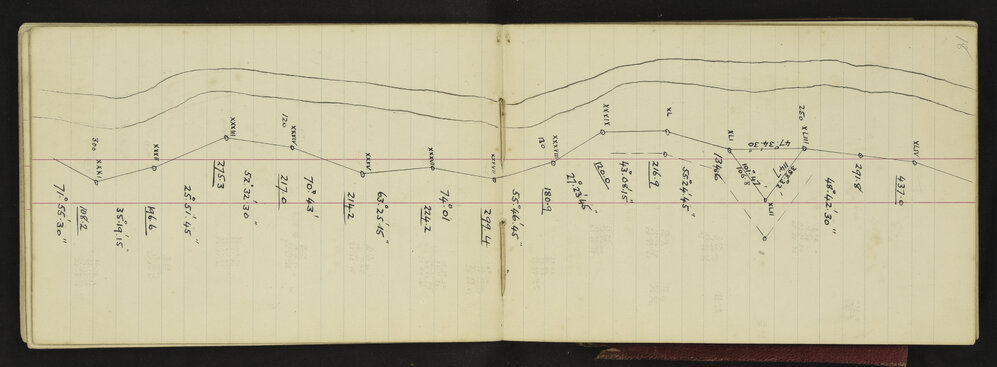 18
300
XXXI
71° 55' 30"
108.2
35° 19' 15"
XXXII
196.6
25° 51' 45"
XXXIII
275.3
52° 32' 30"
120
XXXIV
217.0
70° 43'
XXXV
214.2
63° 25' 15"
XXXVI
224.2
74° 01
XXXVII
299.4
55° 46' 45"
120
XXXVIII
180.9
27° 23' 45"
XXXIX
120.0
43° 08' 15"
XL
216.9
55° 24' 45"
XLI
134.6
47° 34' 30
250
XLIII
XLII
48° 42' 30"
291.8
XLIV
437.0